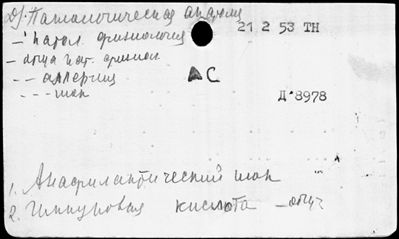 Патологическая анатомия
21 2 53 ТН
— патол. физиология
— общая пат. физиол
— — аллергия
АС
— — — шок
Д-8978
1. Анафилактический шок
2. Гиппуровая кислота —